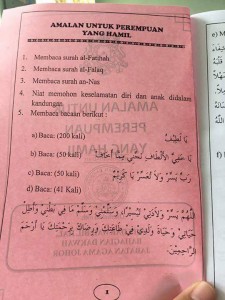 AMALAN UNTUK PEREMPUAN
YANG HAMIL
1. Membaca surah al-Fatihah
2. Membaca surah al-Falaq
3. Membaca surah an-Nas
4. Niat memohon keselamatan diri dan anak didalam
kandungan.
5. Membaca bacaan berikut :
يَا لَطِيْفُ
a) Baca: (200 kali)
يَا خَفِيَّ الْأَلْطَافِ نَجِّنِي مِمَّا أَخَافُ
b) Baca: (50 kali)
رَبِّ يَسِّرْ وَلَا تُعَسِّرْ يَا كَرِيْمُ
c) Baca: (50 kali)
d) Baca: (41 Kali)
اللَّهُمَّ يَسِّرْ وِلَادَتِي تَيْسِيْرًا، وَسَلِّمْنِي وَسَلِّمْ مَا فِي بَطْنِي وَأَطِلْ
حَيَاتِي وَحَيَاةَ وَلَدِي فِي طَاعَتِكَ وَرِضَاكَ بِرَحْمَتِكَ يَا أَرْحَمَ
الرَّاحِمِيْنَ.
1